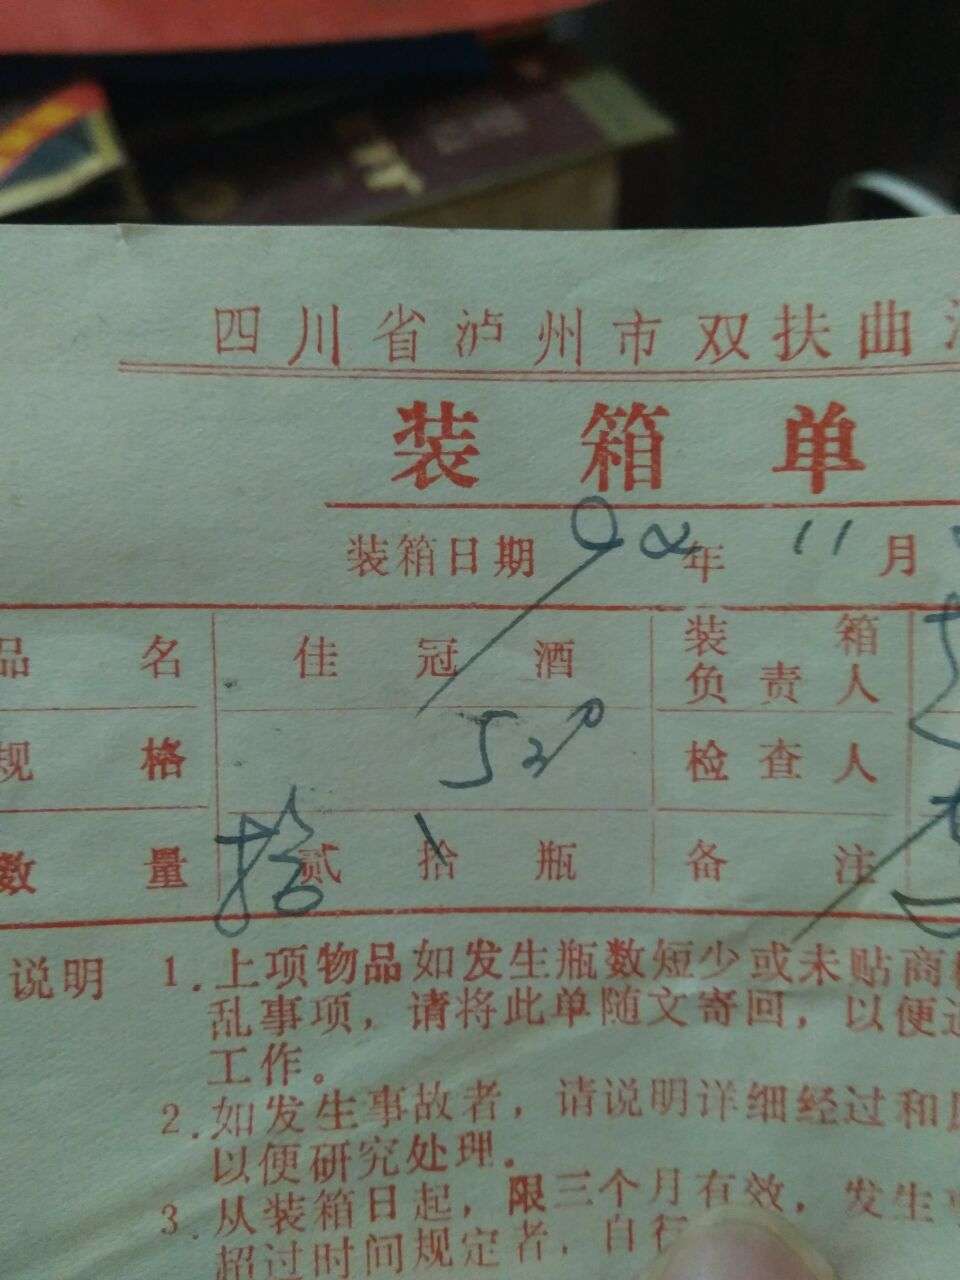 四川省泸州市双扶曲
装箱单
装箱日期 年 11 月
品名 佳冠酒 装箱负责人
规格 52° 检查人
数量 拾 贰拾瓶 备注
说明 1.上项物品如发生瓶数短少或未贴商
乱事项，请将此单随文寄回，以便
工作。
2.如发生事故者，请说明详细经过和
以便研究处理。
3.从装箱日起，限三个月有效，发生
超过时间规定者，自行